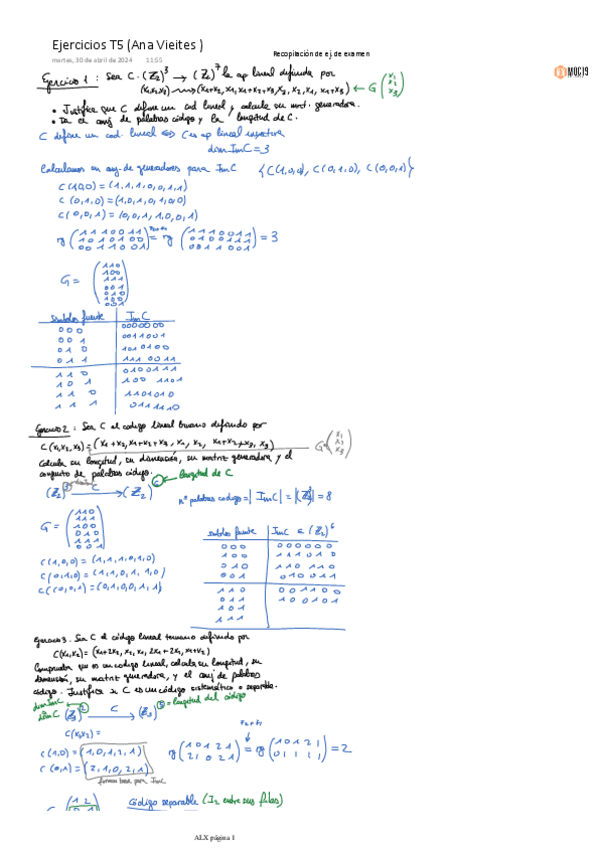 Ejercicios T5 (Ana Vieites )
martes, 30 de abril de 2024 11:55
Recopilación de ej. de examen
MOG19
Ejercicio 1 : Sea C: (Z₂)³ → (Z₂)⁷ la ap lineal definida por
• Justifica que C define un cod lineal y calcula su mat. generadora.
• Da el conj de palabras código y la longitud de C.
C define un cod. lineal ⇔ C es ap lineal inyectiva
dim Im C = 3
Calculamos un conj. de generadores para Im C { C(1,0,0), C(0,1,0), C(0,0,1)}
C(1,0,0) = (1,1,1,0,0,1,1)
C(0,1,0) = (1,0,1,0,1,0,0)
C(0,0,1) = (0,0,1,1,0,0,1)
rg (1 1 1 0 0 1 1 = rg (1 1 1 0 0 1 1 = 3
1 0 1 0 1 0 0 0 1 0 0 1 1 1
0 0 1 1 0 0 1) 0 0 1 1 0 0 1)
G = (1 1 0
1 0 0
1 1 1
0 0 1
0 1 0
1 0 0
símbolos fuente Im C
0 0 0 0000000
0 0 1 0011001
0 1 0 1010100
Ejercicio 2 : Sea C el código lineal binario definido por
Calcula su longitud, su dimensión, su matriz generadora y el
conjunto de palabras código.
longitud de C
(Z₂)³ → (Z₂)⁶
nº palabras código = | Im C | = = 8
G = (1 1 0
1 1 1
1 0 0
0 1 0
1 1 1
0 0 1)
C(1,0,0) = (1,1,1,0,1,0)
C(0,1,0) = (1,1,0,1,1,0)
C(0,0,1) = (0,1,0,0,1,1)
símbolos fuente Im C ⊂ (Z₂)⁶
0 0 0 0 0 0 0 0 0
1 0 0 1 1 1 0 1 0
0 1 0 1 1 0 1 1 0
0 0 1 0 1 0 0 1 1
1 1 0 0 0 1 1 0 0
0 1 1 1 0 0 1 0 1
1 0 1
1 1 1
Ejercicio 3. Sea C el código lineal ternario definido por
C(x₁,x₂) = (x₁+2x₂, x₂, x₁, 2x₁+2x₂, x₁+x₂)
Comprueba que es un código lineal, calcula su longitud, su
dimensión, su matriz generadora, y el conj de palabras
código. Justifica si C es un código sistemático o separable.
dim Im C
dim C (Z₃)² C → (Z₃)⁵ = longitud del código
C(x₁,x₂) =
C(1,0) = (1,0,1,2,1)
C(0,1) = (2,1,0,2,1)
forman base por Im C
rg (1 0 1 2 1 = rg (1 0 1 2 1 = 2
2 1 0 2 1) 0 1 1 1 1)
código separable (I₂ entre sus filas)
ALX página 1